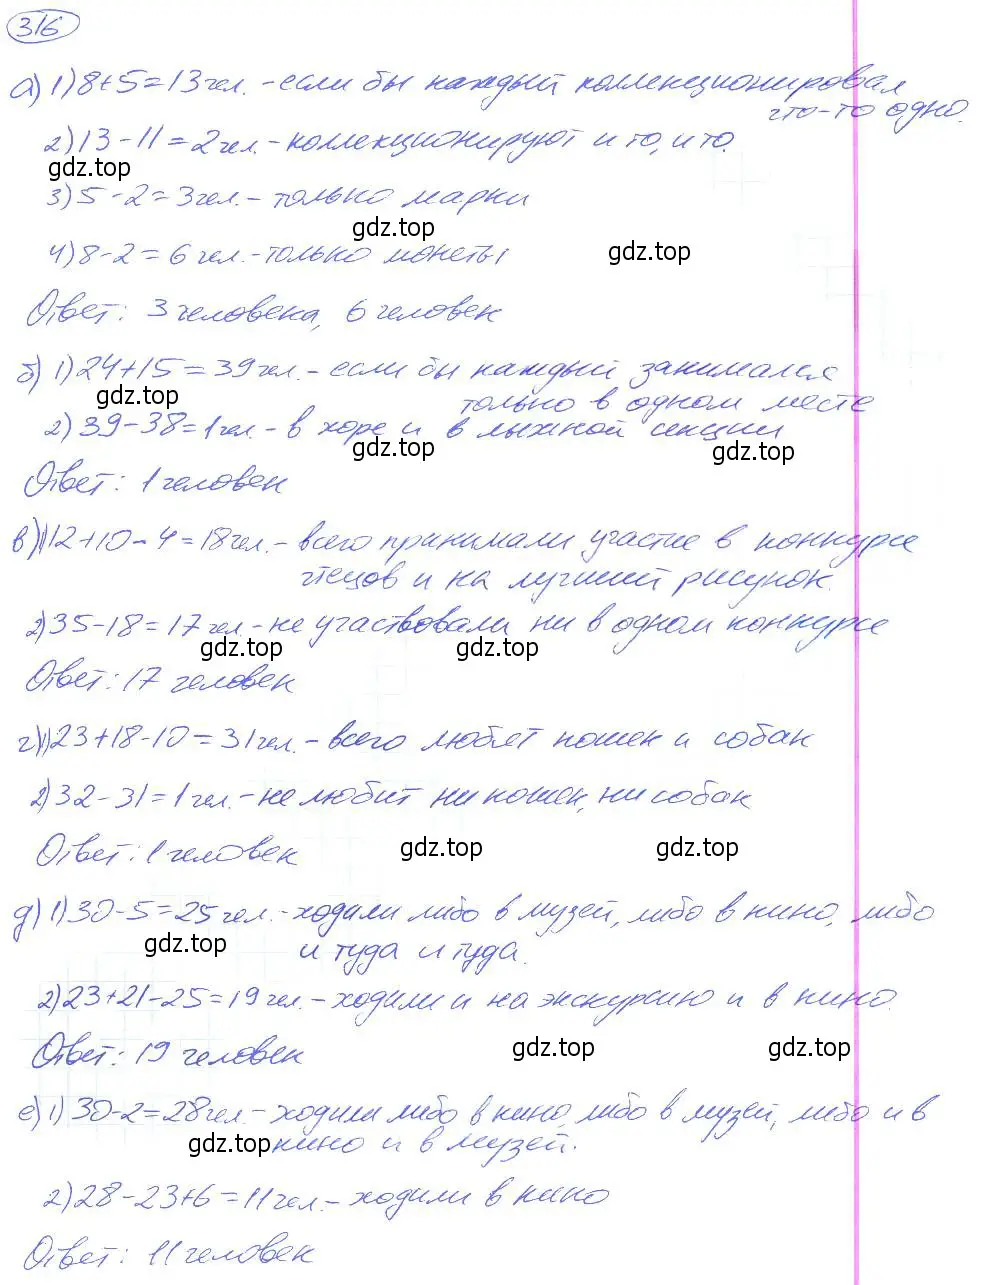 316
а) 1) 8+5=13 чел. - если бы каждый коллекционировал
что-то одно.
2) 13-11=2 чел. - коллекционируют и то, и то.
gdz.top
3) 5-2=3 чел. - только марки
gdz.top
4) 8-2=6 чел. - только монеты
gdz.top
Ответ: 3 человека, 6 человек
б) 1) 24+15=39 чел. - если бы каждый занимался
gdz.top
только в одном месте
2) 39-38=1 чел. - в хоре и в лыжной секции
gdz.top gdz.top
Ответ: 1 человек
в) 1) 12+10-4=18 чел. - всего принимали участие в конкурсе
чтецов и на лучший рисунок.
2) 35-18=17 чел. - не участвовали ни в одном конкурсе
gdz.top gdz.top
Ответ: 17 человек
г) 1) 23+18-10=31 чел. - всего любят кошек и собак
2) 32-31=1 чел. - не любит ни кошек, ни собак
Ответ: 1 человек
gdz.top gdz.top
д) 1) 30-5=25 чел. - ходили либо в музей, либо в кино, либо
gdz.top
и туда и туда.
2) 23+21-25=19 чел. - ходили и на экскурсию и в кино.
Ответ: 19 человек
gdz.top gdz.top
е) 1) 30-2=28 чел. - ходили либо в кино, либо в музей, либо и в
gdz.top
кино и в музей.
2) 28-23+6=11 чел. - ходили в кино
Ответ: 11 человек